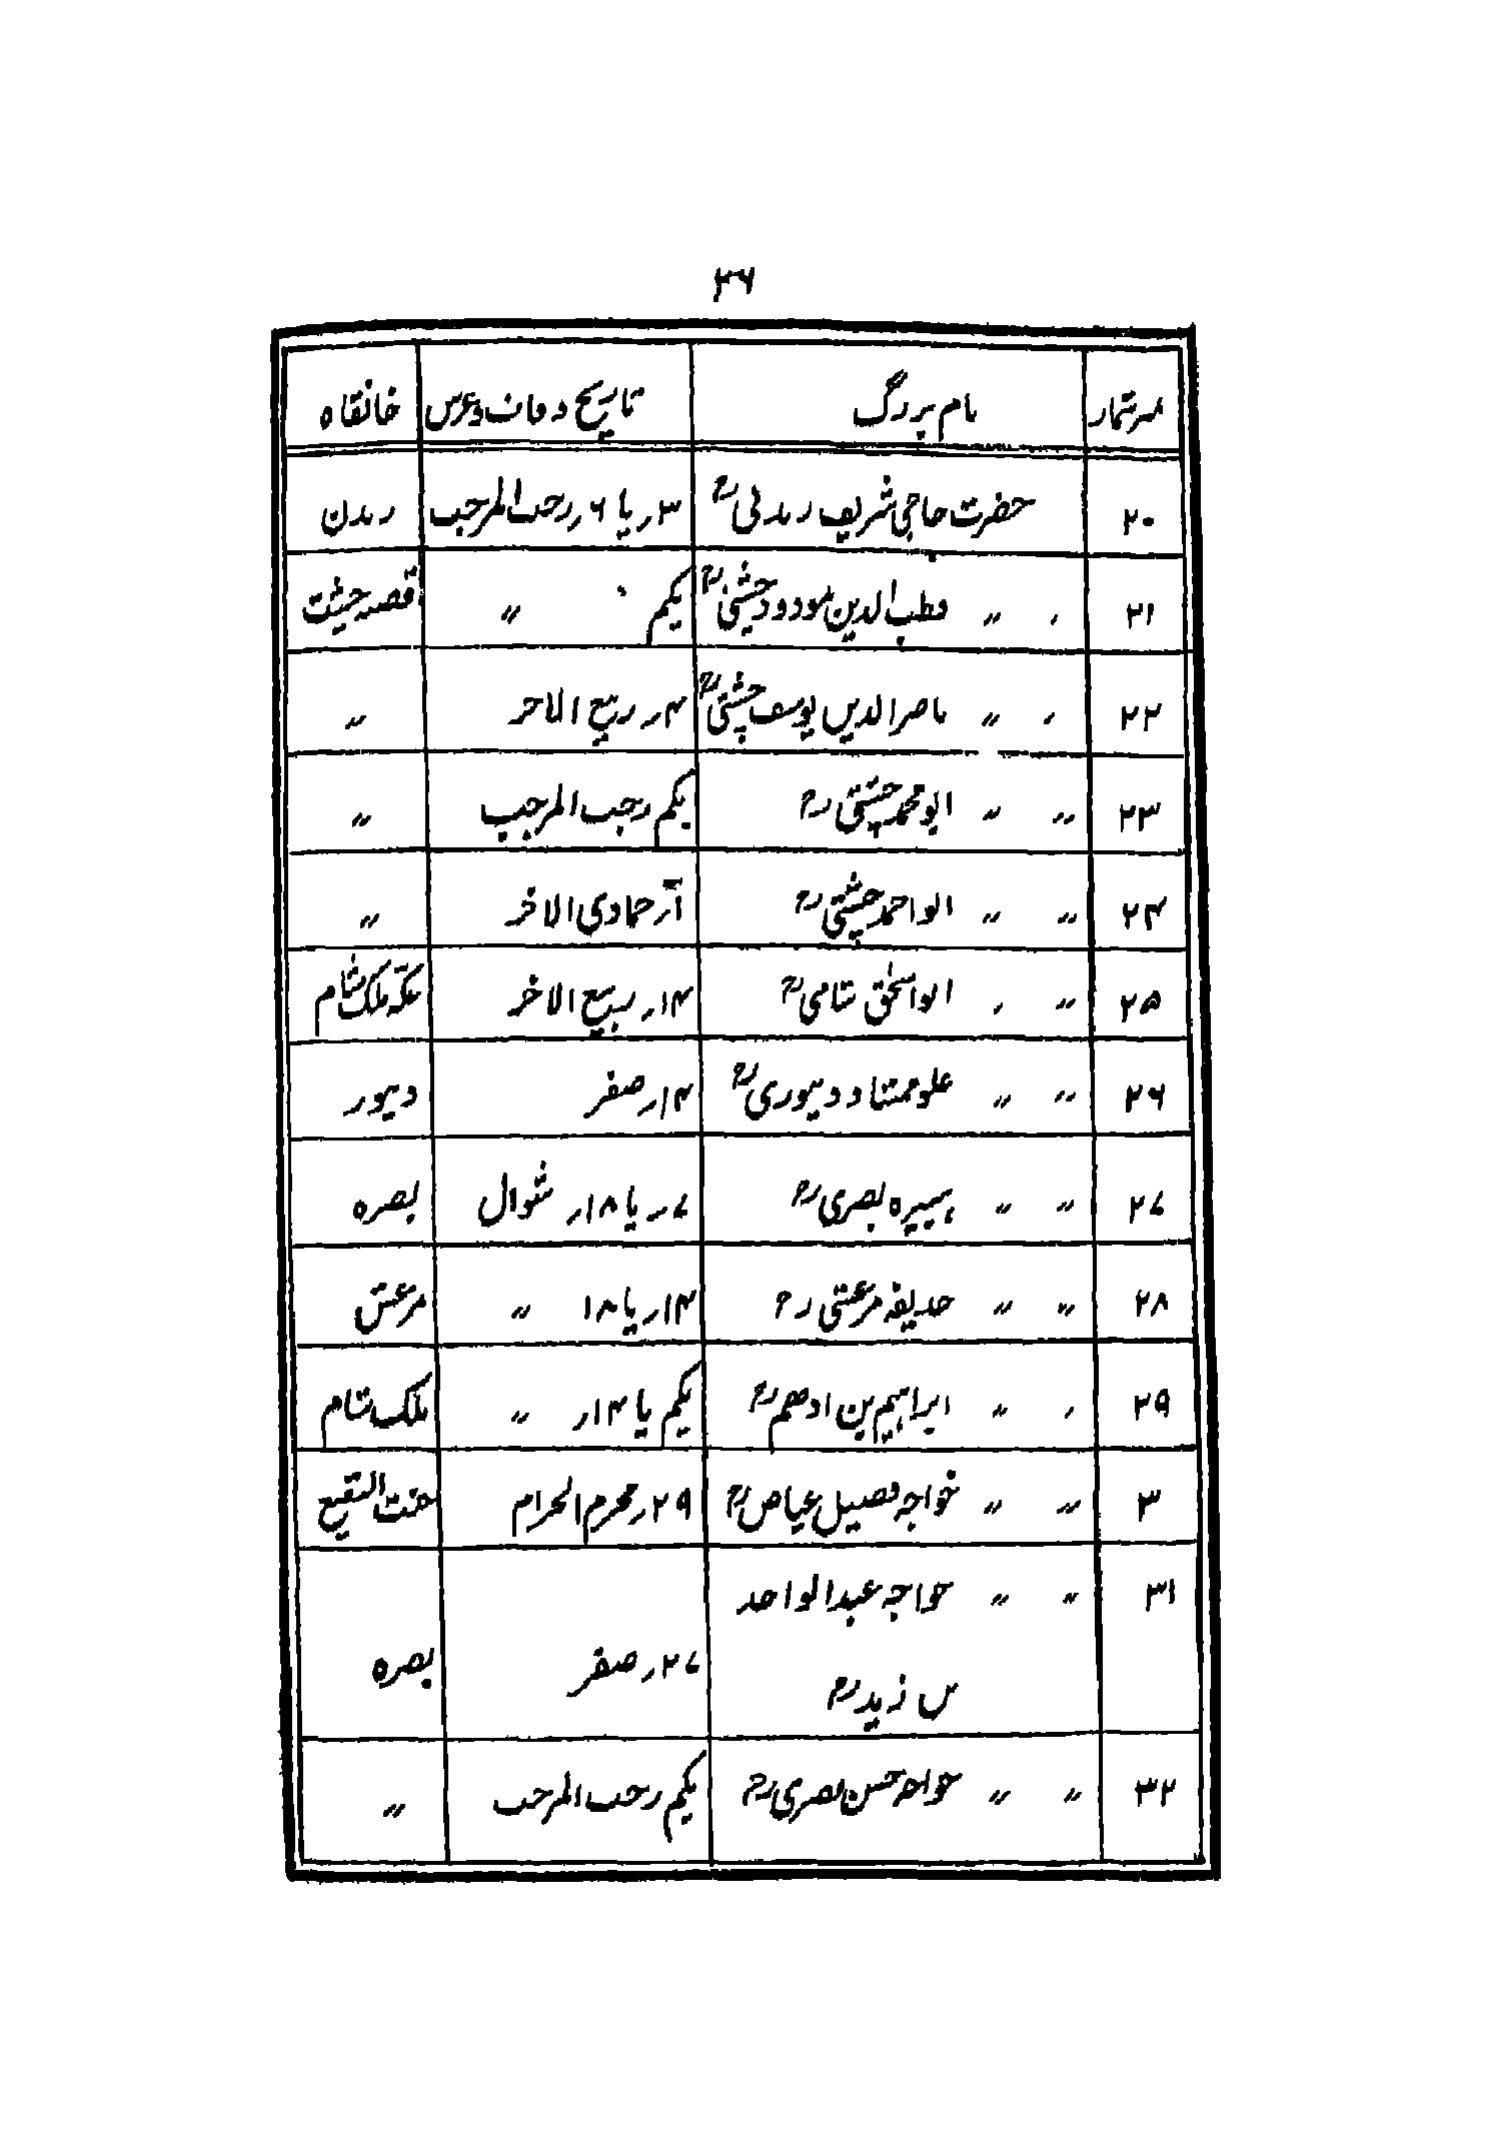 ۳۶
نمبرشمار نام بزرگ تاریخ وفات و عرس خانقاہ
۲۰ حضرت حاجی شریف زندنی رح ۳ر یا ۶ر رجب المرجب زندن
۲۱ ״ ״ قطب الدین مودود چشتی رح یکم ״ قصبہ چشت
۲۲ ״ ״ ناصر الدین یوسف چشتی رح ۴ر ربیع الآخر ״
۲۳ ״ ״ ابو محمد چشتی رح یکم رجب المرجب ״
۲۴ ״ ״ ابو احمد چشتی رح جمادی الآخر ״
۲۵ ״ ״ ابو اسحٰق شامی رح ۱۴ر ربیع الآخر عکہ ملک شام
۲۶ ״ ״ علو ممشاد دینوری رح ۱۴ر صفر دینور
۲۷ ״ ״ ہبیرہ بصری رح ۷ر یا ۱۸ر شوال بصرہ
۲۸ ״ ״ حذیفہ مرعشی رح ۱۴ر یا ۱۸ ״ مرعش
۲۹ ״ ״ ابراہیم بن ادھم رح یکم یا ۱۴ر ״ ملک شام
۳۰ ״ ״ خواجہ فضیل عیاض رح ۲۹ر محرم الحرام جنت البقیع
۳۱ ״ ״ خواجہ عبدالواحد
بن زید رح ۲۷ر صفر بصرہ
۳۲ ״ ״ خواجہ حسن بصری رح یکم رجب المرجب ״